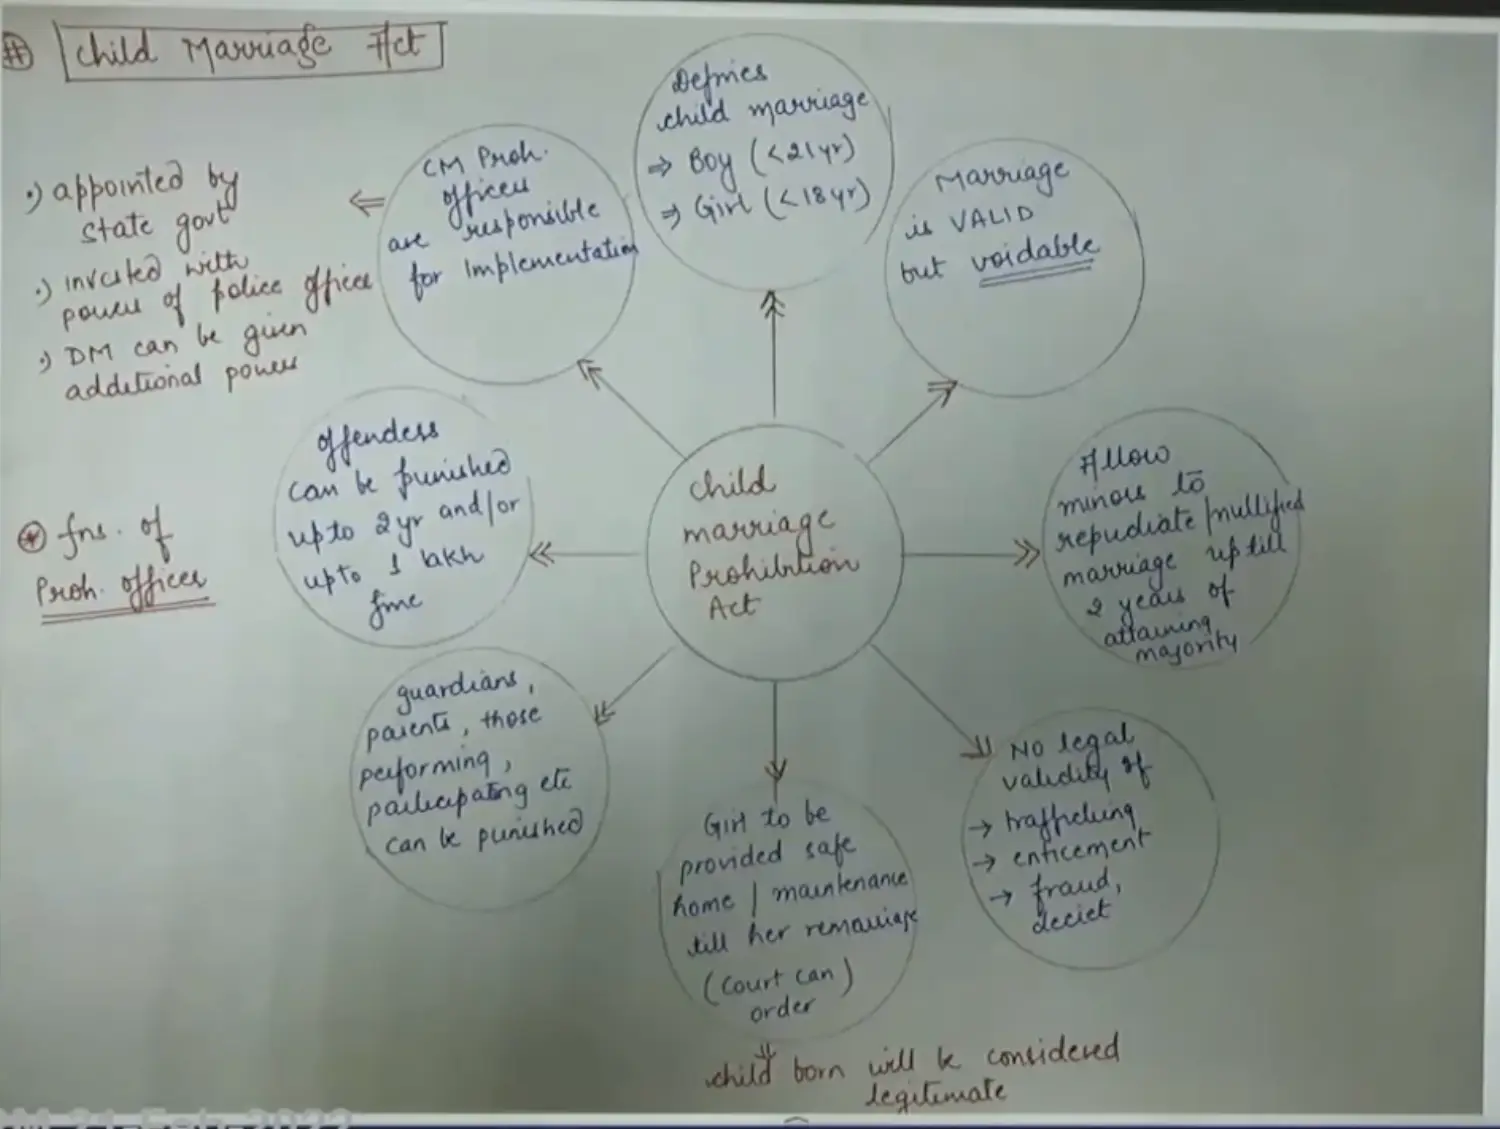 # Child Marriage Act
Defines
child marriage
⇒ Boy (<21yr)
⇒ Girl (<18yr)
Marriage
is VALID
but voidable
Allow
minors to
repudiate/nullified
marriage up till
2 years of
attaining
majority
No legal
validity of
→ trafficking
→ enticement
→ fraud,
deciet
Girl to be
provided safe
home / maintenance
till her remarriage
(court can)
order
child born will be considered
legitimate
guardians,
parents, those
performing,
participating etc
can be punished
offenders
can be punished
upto 2yr and/or
upto 1 lakh
fine
CM Proh.
officer
are responsible
for Implementation
⇐
·) appointed by
state govt
·) invested with
power of police officer
·) DM can be given
additional power
* fns. of
Proh. officer
child
marriage
Prohibition
Act